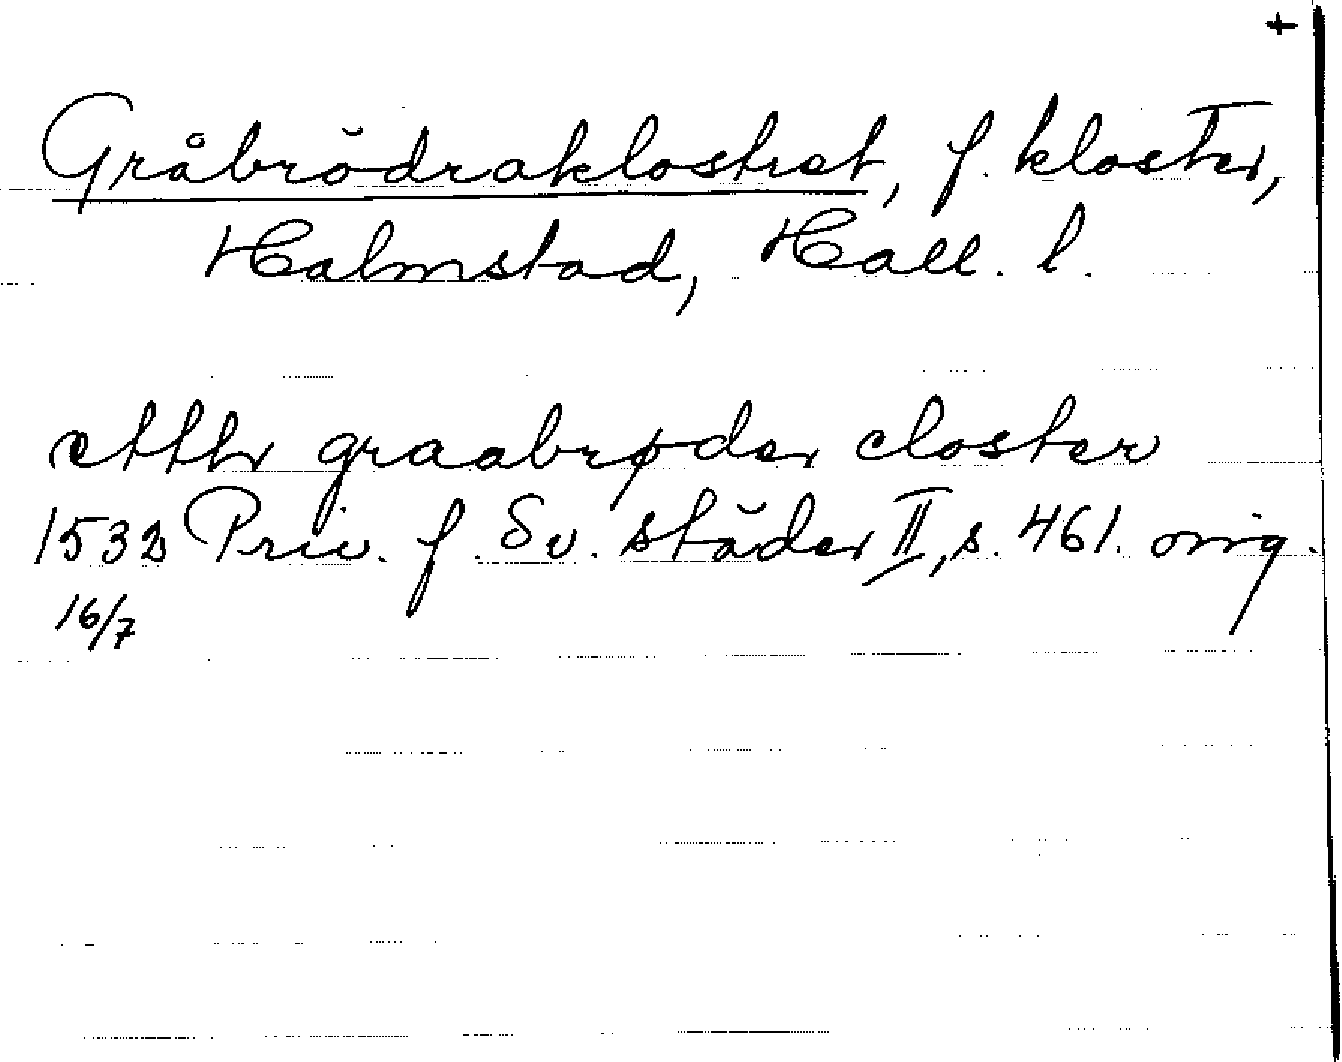 +
Gråbrödraklostret, f. kloster,
Halmstad, Hall. l.
etthr graabrøder closter
1532 Priv. f. Sv. städer II, s. 461. orig.
16/7